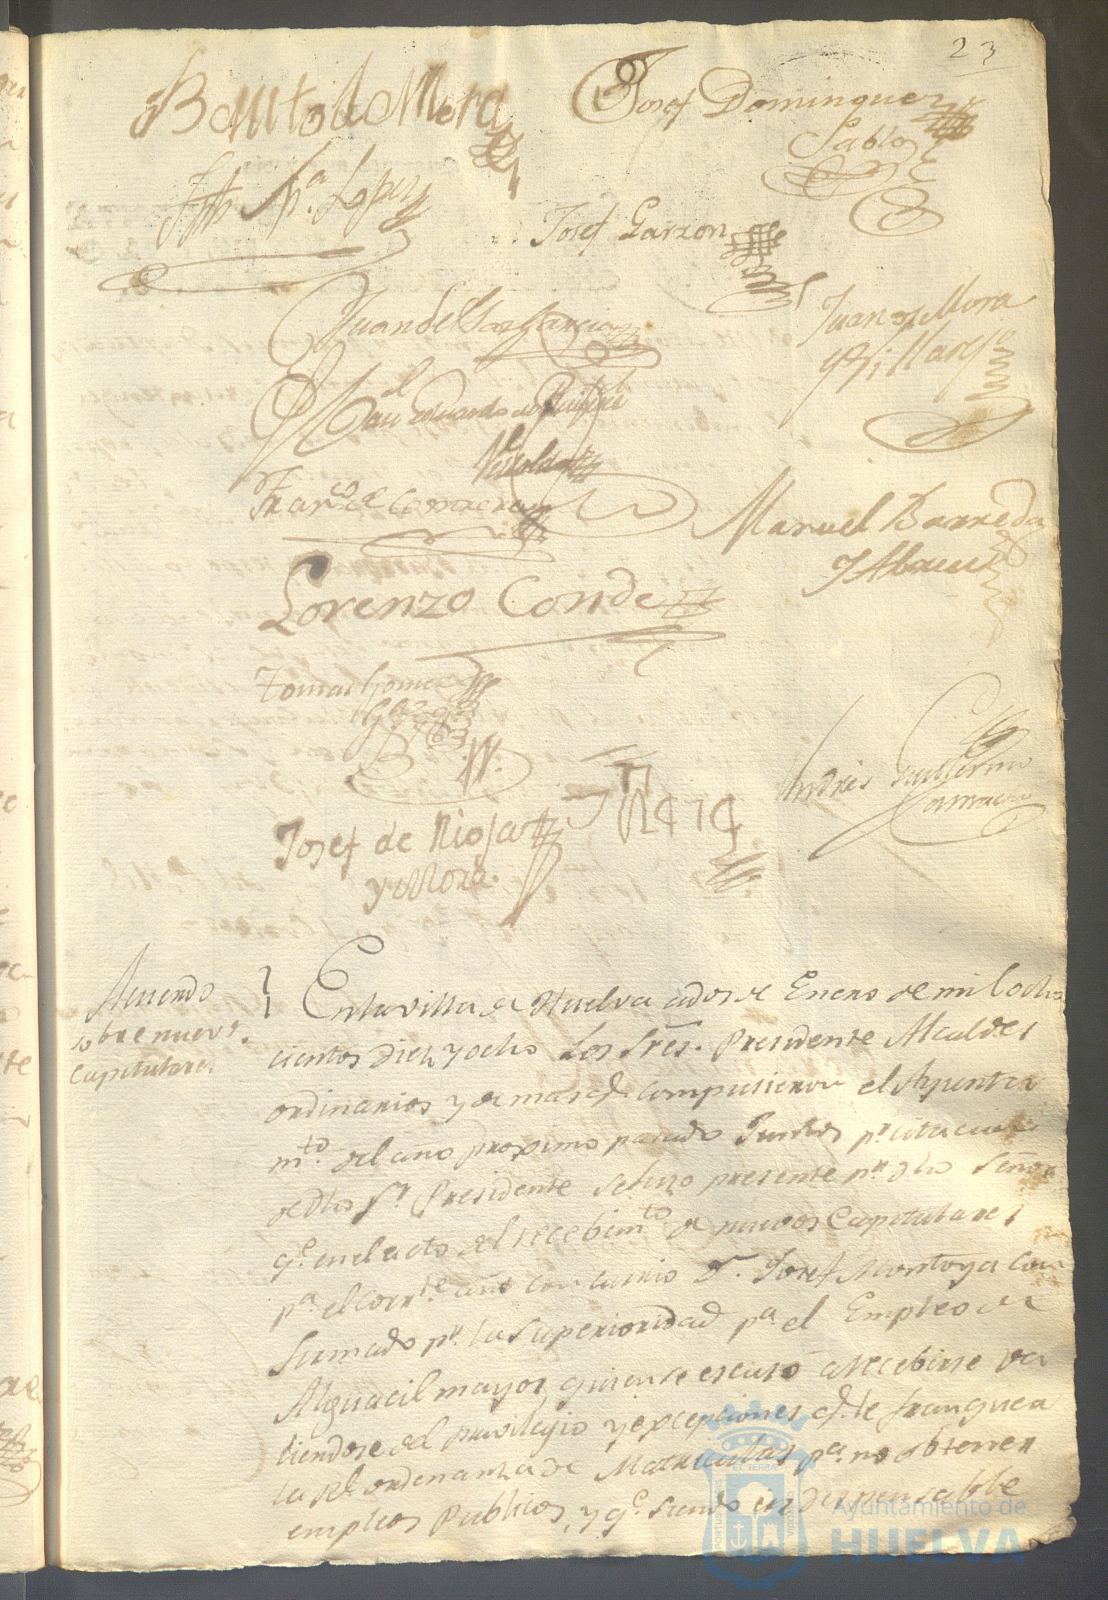 23
Benito de Mora
Josef Dominguez
Pablos
Jph Mª. Lopez
Josef Garzon
Juan de
Garcia
Juan de Mora
y Villarej
Eduardo de
Franco. de Contreras
Manuel Barreda
y Abreu
Lorenzo Conde
Tomas Gomez
Andres Guillermo
Camacho
Josef de Rioja
y Mora.
Acuerdo
sobre nuevs.
Capitulares.
En la villa de Huelva a dos de Enero de mil ocho
cientos diez y ocho Los Sres. Presidente Alcaldes
ordinarios y demas qe. compusieron el Ayunta
mto. del año proximo pasado Juntos pr. citacion
de dho Sr. Presidente se hizo presente pr. dho Señor
qe. en el acto del recebimto. de nuevos Capitulares
pa. el corrte. año con Dn. Josef Montoya con
sumado pr. la Superioridad pa. el Empleo de
Alguacil mayor, quien se escusó a recebirse va
liendose del privilegio y excepciones qe. le franquea
la Rl. ordenanza de Matriculas pa. no obtener
empleos Publicos, y qe. siendo indispensable
PORTUS
CUSTODIA
ET TERRAE
Ayuntamiento de
HUELVA